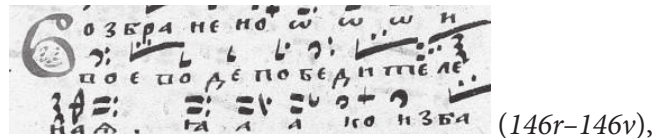 Возбранено ѡ ѡ ѡ и
поеподепобедителе
наѧ. ꙗ а а ко изба (146r–146v),